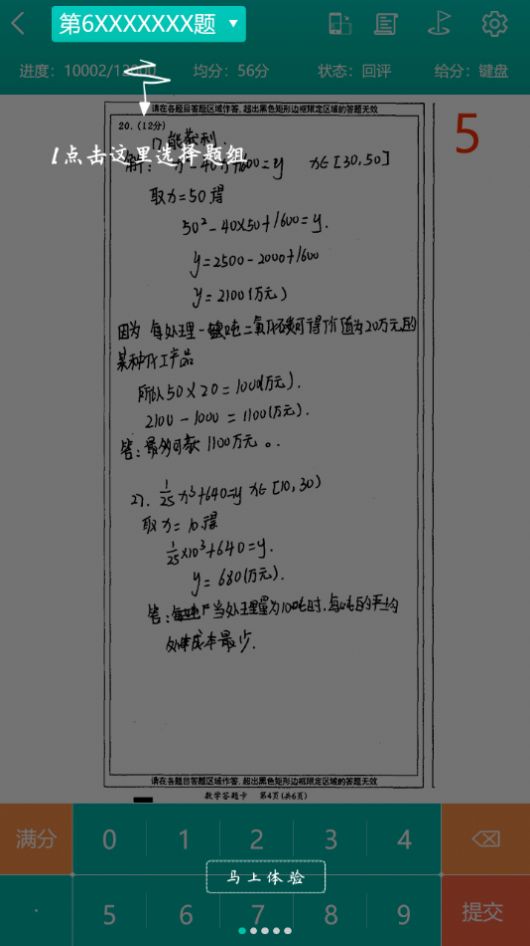 第6XXXXXXX题
进度：10002/12000 均分：56分 状态：回评 给分：键盘
请在各题目答题区域作答，超出黑色矩形边框限定区域的答题无效
5
20.（12分）
1点击这里选择题组
取x=50得
50²-40×50+1600=y.
y=2500-2000+1600
y=2100(万元)
因为 每处理一吨二氧化碳可得价值为20万元的
某种化工产品
所以50×20=1000(万元).
2100-1000=1100(万元).
答:最多可获1100万元。
27. 1/25 x³+640=y x∈[10,30)
取x=10得
1/25×10³+640=y.
y=680(万元).
答: 当处理量为10吨时,每吨的平均
处理成本最少.
请在各题目答题区域作答，超出黑色矩形边框限定区域的答题无效
数学答题卡 第4页(共6页)
满分 0 1 2 3 4
马上体验
. 5 6 7 8 9 提交